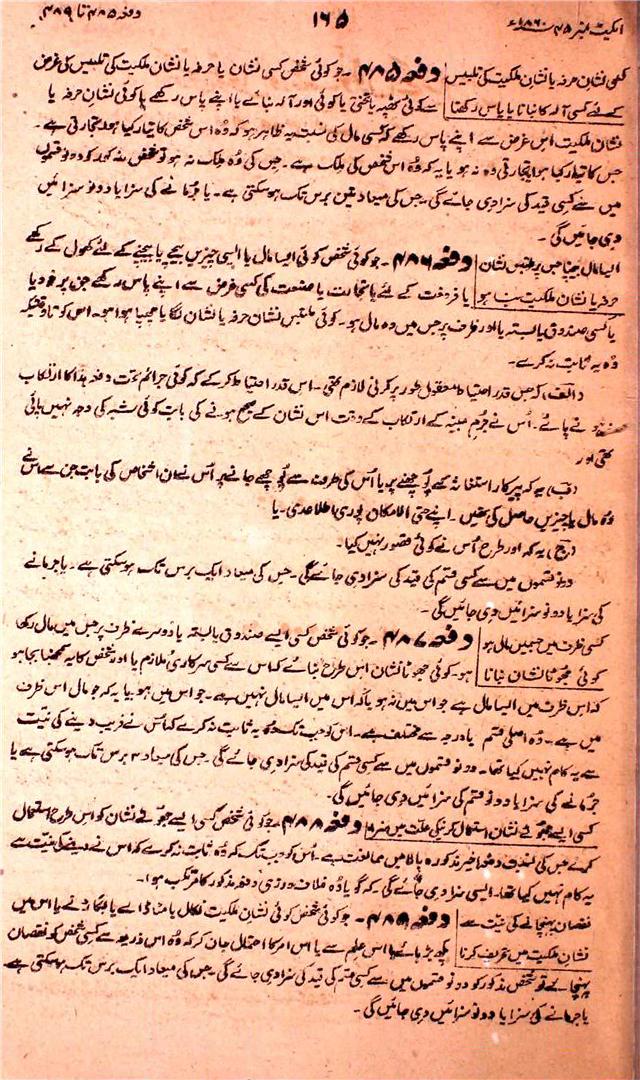 ایکٹ نمبر ۴۵ ۱۸۶۰ء ۱۶۵ دفعہ ۴۸۵ تا ۴۸۹
کسی نشان حرفہ یا نشان ملکیت کی تلبیس دفعہ ۴۸۵ ۔ جو کوئی شخص کسی نشان یا حرفہ یا نشان ملکیت کی تلبیس کی غرض
کے لئے کسی آلہ کا بنانا یا پاس رکھنا سے کوئی ٹھپہ یا تختی یا کوئی اور آلہ بنائے یا اپنے پاس رکھے یا کوئی نشان حرفہ یا
نشان ملکیت اس غرض سے اپنے پاس رکھے کہ کسی مال کی نسبت یہ ظاہر ہو کہ وہ اس شخص کا تیار کیا ہوا تجارتی ہے ۔
جس کا تیار کیا ہوا تجارتی وہ نہ ہو یا یہ کہ وہ اس شخص کی ملک ہے ۔ جس کی وہ ملک نہ ہو تو شخص مذکور کو دونو قسموں
میں سے کسی قید کی سزا دی جائے گی ۔ جس کی میعاد تین برس تک ہو سکتی ہے ۔ یا جرمانے کی سزا یا دونو سزائیں
دی جائیں گی ۔
ایسا مال بیچنا جس پر ملتبس نشان دفعہ ۴۸۶ ۔ جو کوئی شخص کوئی ایسا مال یا ایسی چیزیں بیچے یا بیچنے کے لئے کھول کے رکھے
حرفہ یا نشان ملکیت بنا ہو یا فروخت کے لئے یا تجارت یا صنعت کی کسی غرض سے اپنے پاس رکھے جن پر خود یا
یا کسی صندوق یا بستہ یا اور ظرف پر جس میں وہ مال ہو ۔ کوئی ملتبس نشان حرفہ یا نشان لگا یا چھپا ہوا ہو ۔ اس کو تاوقتیکہ
وہ یہ ثابت نہ کرے ۔
(الف) کہ جس قدر احتیاط معقول طور پر کرنی لازم تھی ۔ اس قدر احتیاط کر کے کہ کوئی جرائم تحت دفعہ ہذا کا ارتکاب
نہ ہونے پائے ۔ اس نے جرم مبینہ کے ارتکاب کے وقت اس نشان کے صحیح ہونے کی بابت کوئی شبہ کی وجہ نہیں پائی
تھی اور
(ب) یہ کہ پیرکار استغاثہ کے پوچھنے پر یا اس کی طرف سے پوچھے جانے پر اس نے ان اشخاص کی بابت جن سے اس نے
وہ مال یا چیزیں حاصل کی تھیں ۔ اپنے حتی الامکان پوری اطلاع دی ۔ یا
(ج) یہ کہ اور طرح اس نے کوئی قصور نہیں کیا ۔
دونو قسموں میں سے کسی قسم کی قید کی سزا دی جائے گی ۔ جس کی میعاد ایک برس تک ہو سکتی ہے ۔ یا جرمانے
کی سزا یا دونو سزائیں دی جائیں گی ۔
کسی ظرف میں جس میں مال ہو دفعہ ۴۸۷ ۔ جو کوئی شخص کسی ایسے صندوق یا بستہ یا دوسرے ظرف پر جس میں مال رکھا
کوئی جھوٹا نشان بنانا ہو ۔ کوئی جھوٹا نشان اس طرح بنائے کہ اس سے کسی سرکاری ملازم یا اور شخص کا یہ سمجھنا بجا ہو
کہ اس ظرف میں ایسا مال ہے جو اس میں نہ ہو یا کہ اس میں ایسا مال نہیں ہے ۔ جو اس میں ہو یا یہ کہ جو مال اس ظرف
میں ہے ۔ وہ اصلی قسم یا درجہ سے مختلف ہے ۔ اس کو جب تک وہ یہ ثابت نہ کرے کہ اس نے فریب دینے کی نیت
سے یہ کام نہیں کیا تھا ۔ دونو قسموں میں سے کسی قسم کی قید کی سزا دی جائے گی ۔ جس کی میعاد ۳ برس تک ہو سکتی ہے یا
جرمانے کی سزا یا دونو قسم کی سزائیں دی جائیں گی ۔
کسی ایسے جھوٹے نشان استعمال کرنیکی علت میں سزا دفعہ ۴۸۸ ۔ جو کوئی شخص کسی ایسے جھوٹے نشان کو اس طرح استعمال
کرے جس کی نسبت دفعہ اخیر مذکورہ بالا میں ممانعت ہے ۔ اس کو جب تک کہ وہ ثابت نہ کرے کہ اس نے فریب کی نیت سے
یہ کام نہیں کیا تھا ۔ ایسی سزا دی جائے گی کہ گویا وہ خلاف ورزی دفعہ مذکور کا مرتکب ہوا ۔
نقصان پہنچانے کی نیت سے دفعہ ۴۸۹ ۔ جو کوئی شخص کوئی نشان ملکیت نکال یا مٹا ڈالے یا بگاڑ دے یا اس میں
نشان ملکیت میں تحریف کرنا کچھ بڑھائے یا اس علم سے یا اس امر کا احتمال جان کر کہ وہ اس ذریعہ سے کسی شخص کو نقصان
پہنچائے تو شخص مذکور کو دونو قسموں میں سے کسی قسم کی قید کی سزا دی جائے گی ۔ جس کی میعاد ایک برس تک ہو سکتی ہے
یا جرمانے کی سزا یا دونو سزائیں دی جائیں گی ۔